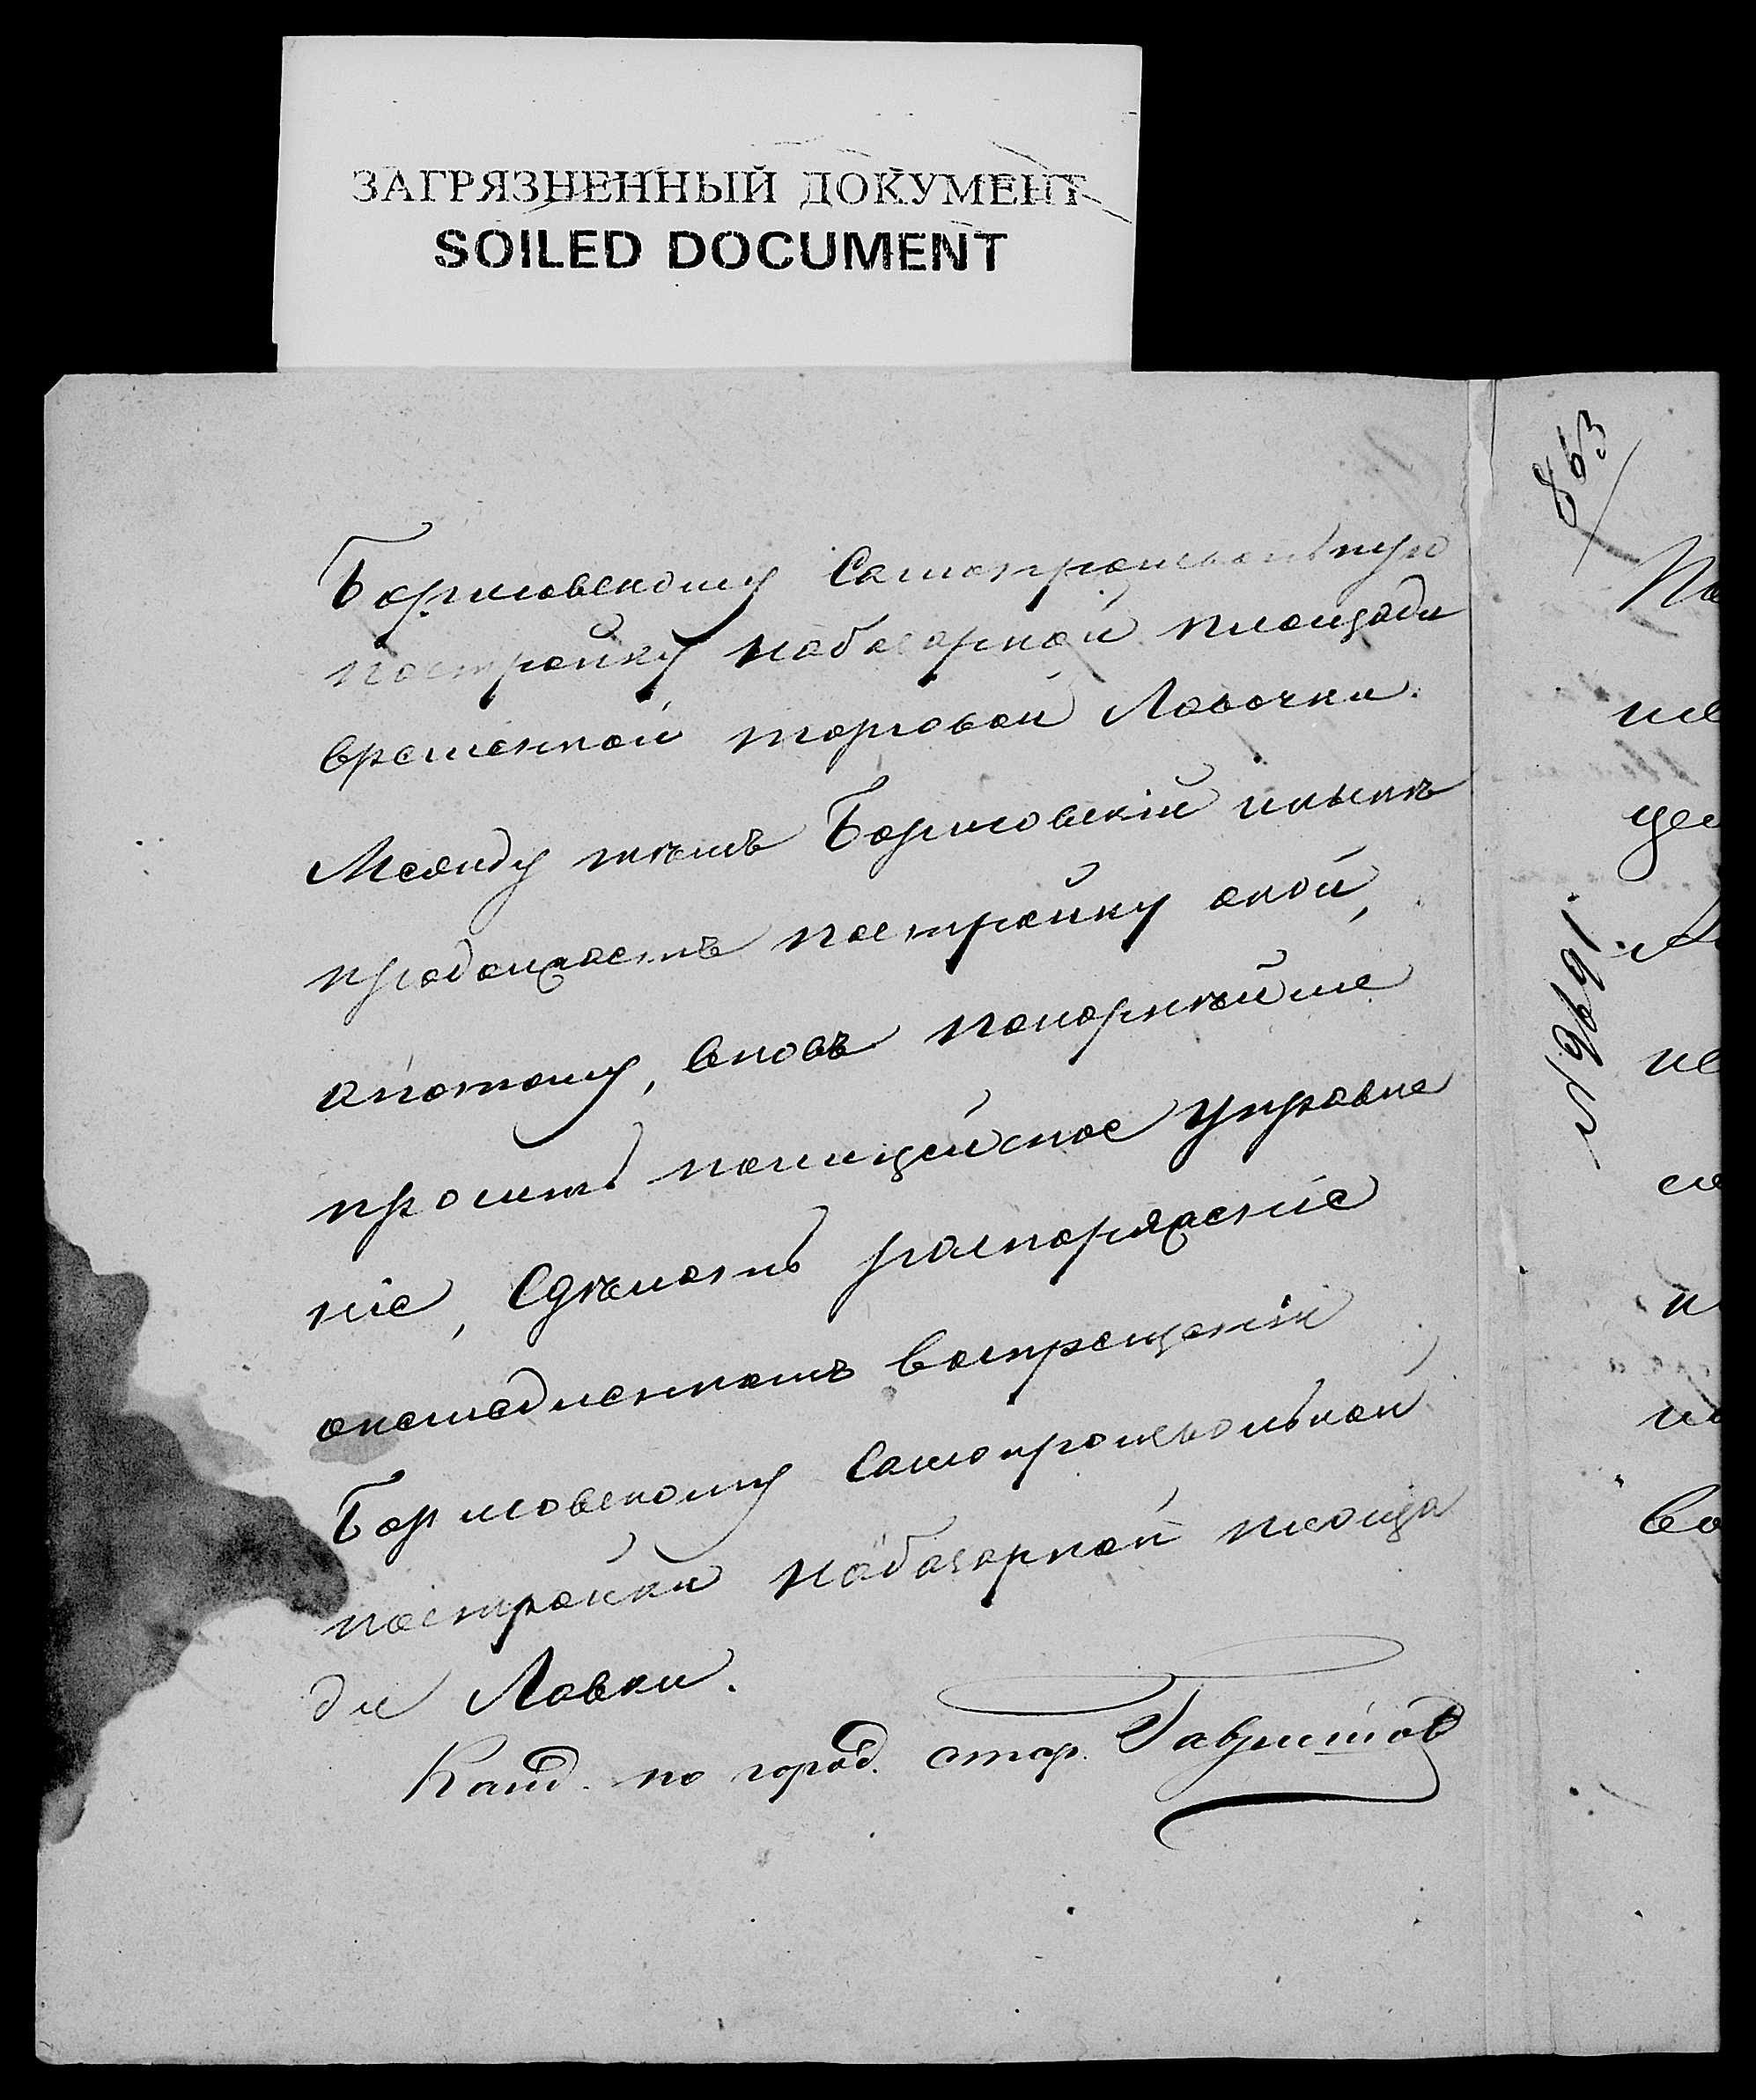 ЗАГРЯЗНЕННЫЙ ДОКУМЕНТ
SOILED DOCUMENT
Борисовскому самопроизвольную
постройку набазарной площади
временной торговой Лавочки.
Между тѣмъ Борисовскій нынѣ
продолжаетъ постройку оной,
апотому, вновь покорнѣйше
проситъ полицейское управле
ніе, сдѣлать распоряженіе
онемедленномъ воспрещеніи
Борисовскому самопроизвольной
постройки набазарной площа
ди Лавки.
Канд. по город. стар.
863
№ 9691
По
це
не
со
п
во